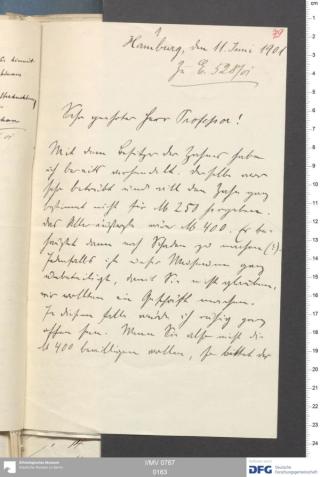 79
Hamburg, den 11. Juni 1901
Zu E. 528/01
Sehr geehrter Herr Professor!
Mit dem Besitzer des Zahnes habe
ich bereits verhandelt. Derselbe war
sehr betrübt und will den Zahn ganz
bestimmt nicht für M 250 hergeben.
das Alleräusserste wäre M. 400. Er be-
hauptet dann noch Schaden zu machen (?).
Jedenfalls ist unser Museum ganz
unbeteiligt, damit Sie nicht glauben,
wir wollten ein Geschäft machen.
In diesem Falle würde ich ruhig ganz
offen sein. Wenn Sie also nicht die
M 400 bewilligen wollen, so bittet der
Ethnologisches Museum
Staatliche Museen zu Berlin
I/MV 0767
0163
DFG Deutsche
Forschungsgemeinschaft